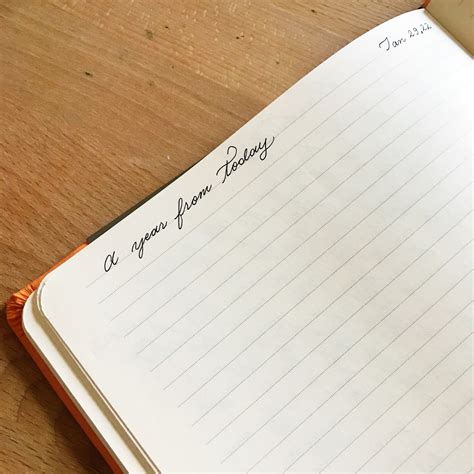 Jan 29, 22
a year from today